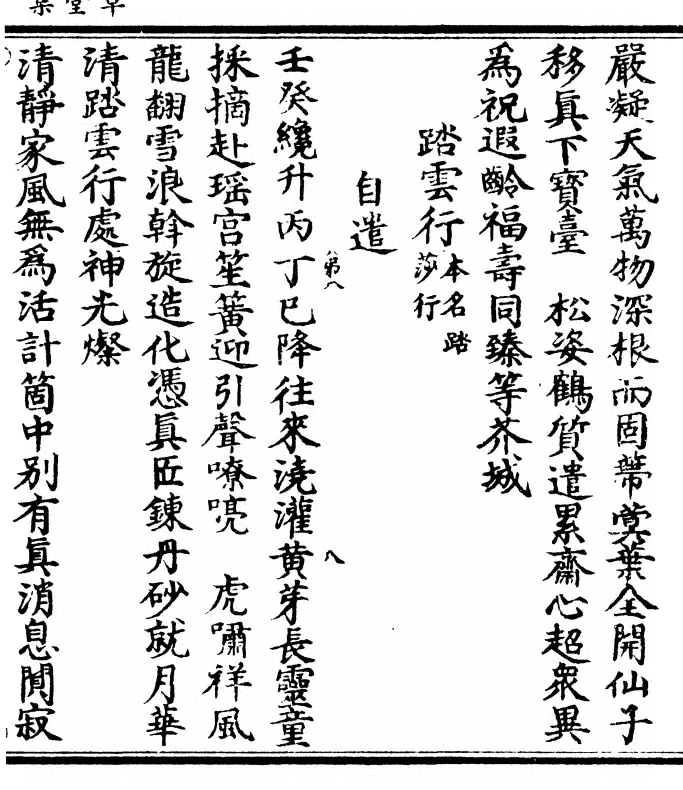 嚴凝天氣萬物深根而固蔕蓂葉全開仙子
移眞下寶臺　松姿鶴質遣累齋心超衆異
為祝遐齡福壽同臻等芥城
踏雲行本名踏莎行
自遣
壬癸纔升丙丁巳降往來澆灌黄芽長靈童
採摘赴瑶宫笙簧迎引聲嘹喨　虎嘯祥風
龍翻雪浪斡旋造化憑眞匠鍊丹砂就月華
清踏雲行處神光燦
清靜家風無為活計箇中别有眞消息閴寂